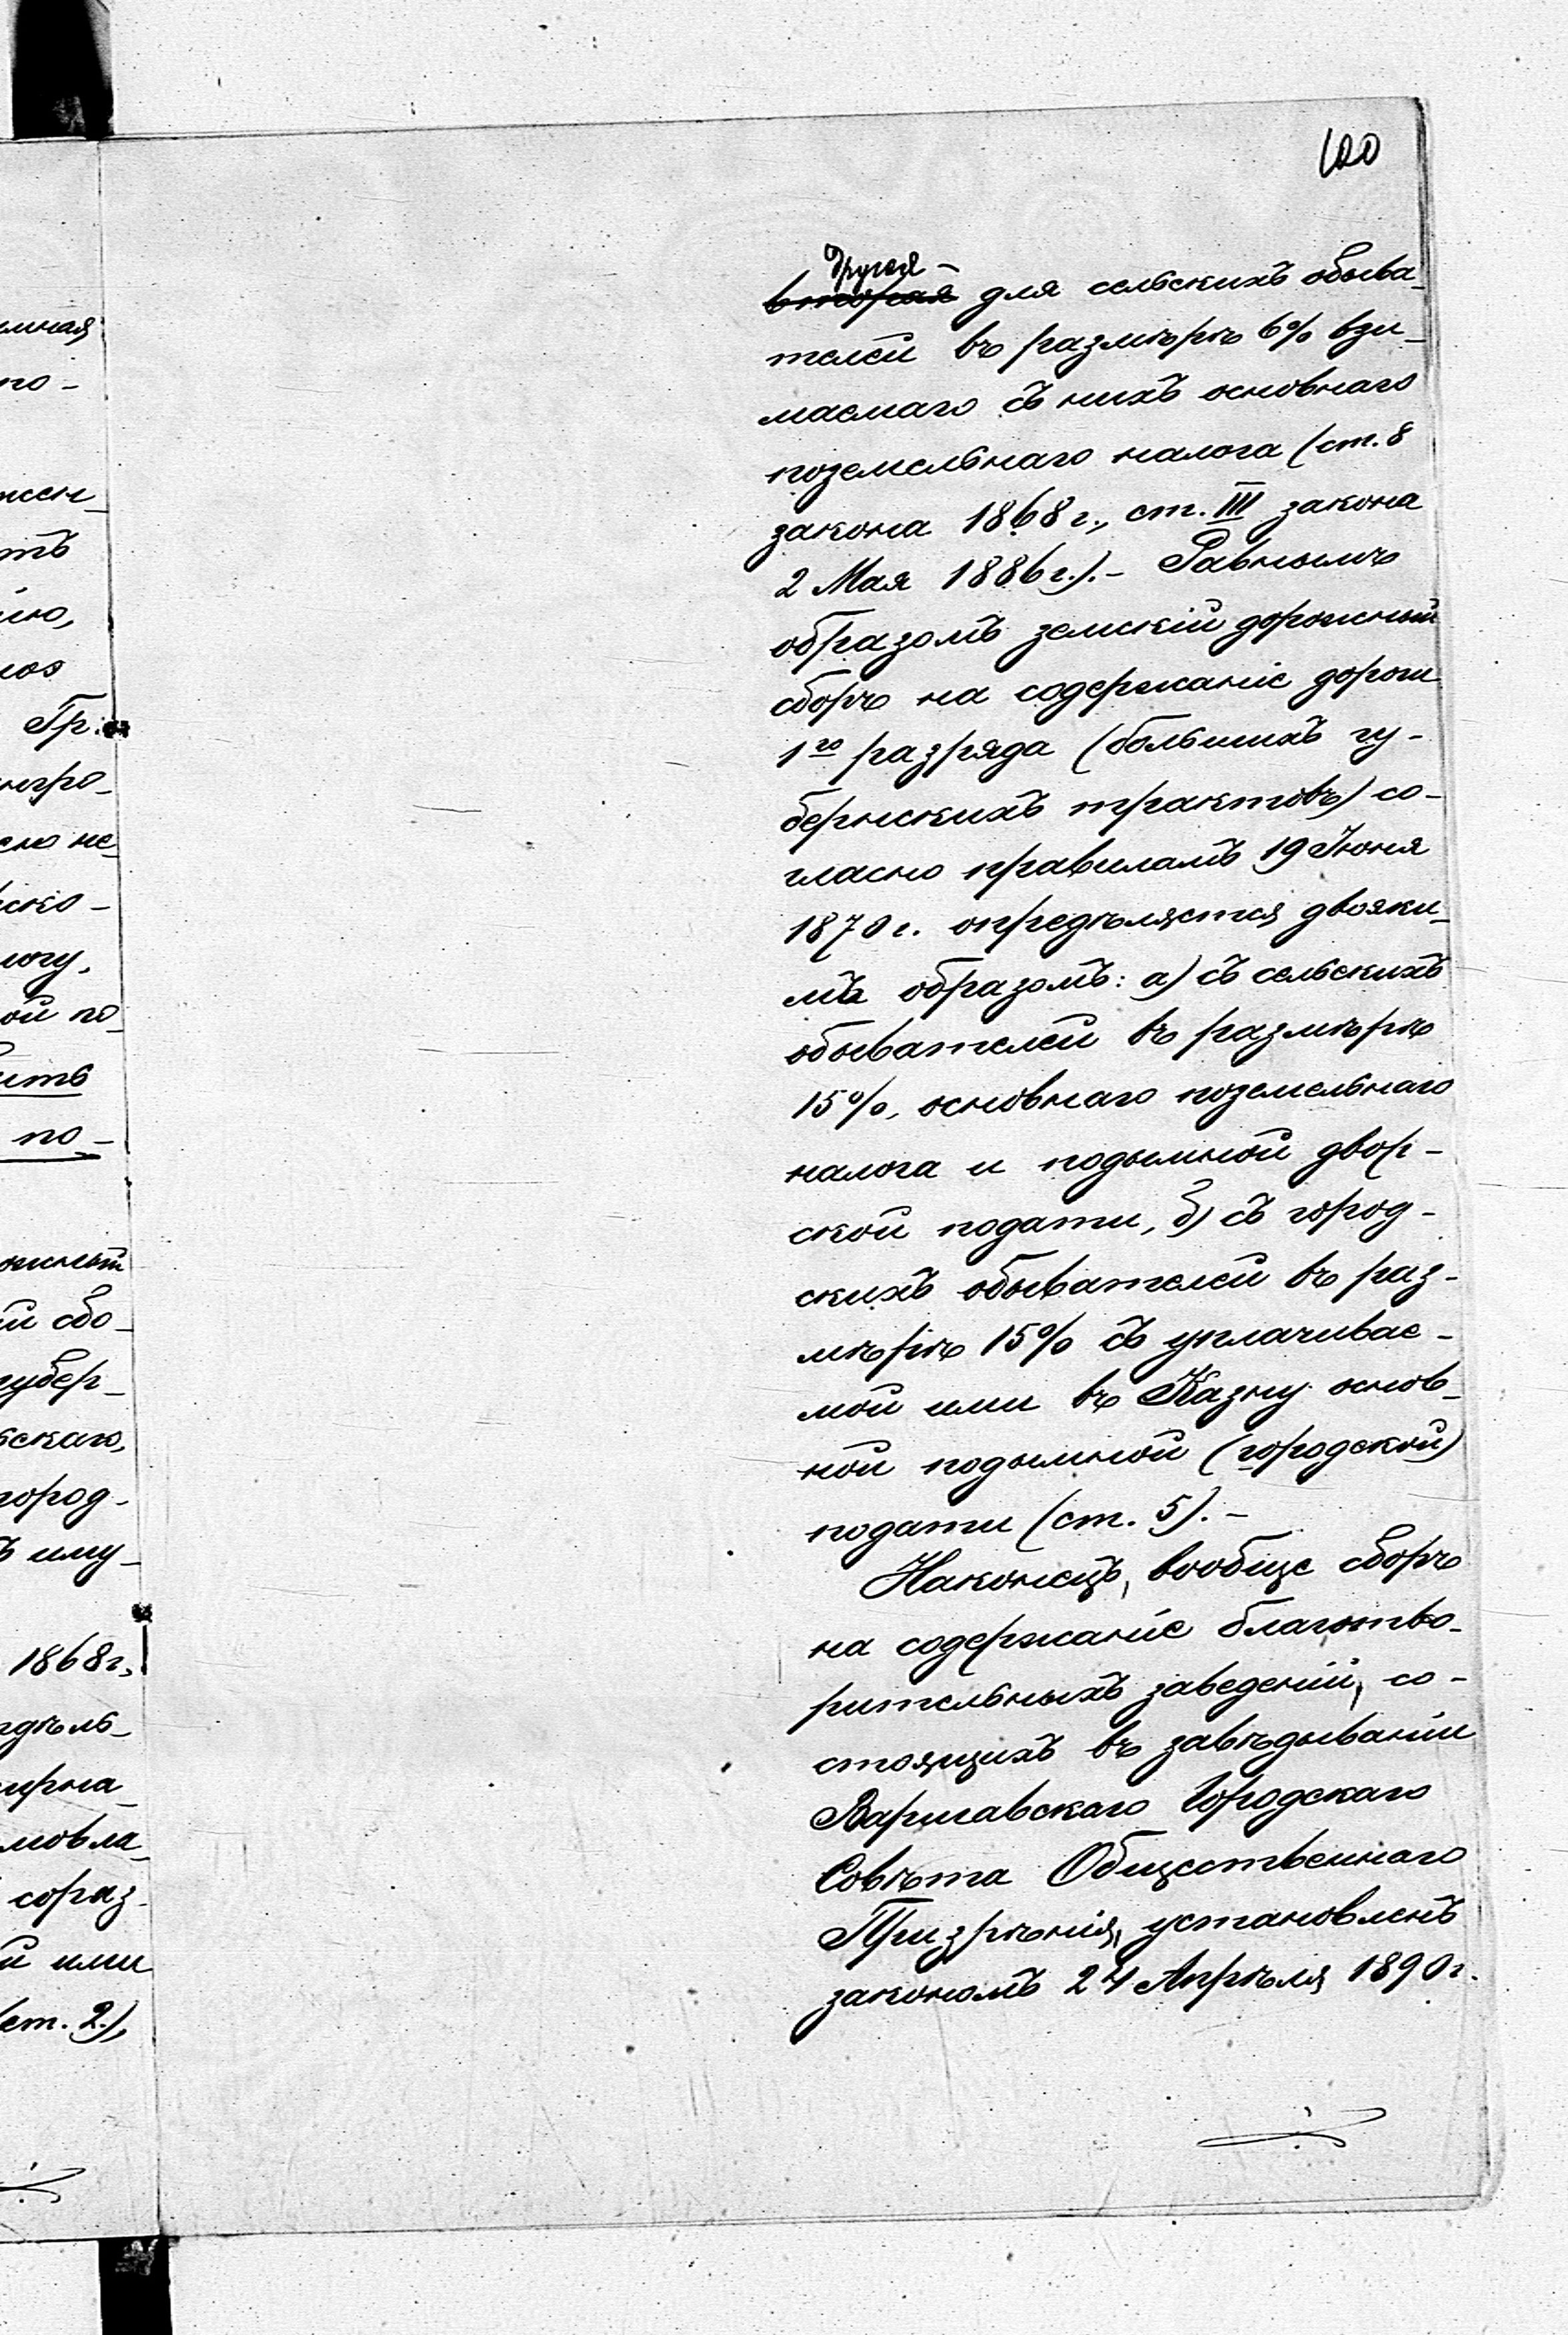 100
другая –
вторая для сельскихъ обыва_
телей въ размѣрѣ 6% взи_
маемаго съ нихъ основнаго
поземельнаго налога (ст. 8
закона 1868 г., ст. III закона
2 Мая 1886 г.). – Равнымъ
образомъ земскій дорожный
сборъ на содержаніе дорогъ
1го разряда (большихъ гу-
бернскихъ трактовъ) со-
гласно правиламъ 19 Іюня
1870 г. опредѣляется двояки_
мъ образомъ: а) съ сельскихъ
обывателей въ размѣрѣ
15%, основнаго поземельнаго
налога и подымной двор-
ской подати, б) съ город-
скихъ обывателей въ раз-
мѣрѣ 15% съ уплачивае-
мой ими въ Казну основ_
ной подымной (городской)
подати (ст. 5). –
Наконецъ, вообще сборъ
на содержаніе благотво_
рительныхъ заведеній, со-
стоящихъ въ завѣдываніи
Варшавскаго Городскаго
Совѣта Общественнаго
Призрѣнія, установленъ
закономъ 24 Апрѣля 1890 г.
но-
Гр.
ою не_
ой по_
по-
и сбо_
губер_
город-
ъ иму_
1868 г.,
сораз-
й ими
(ст. 2.),